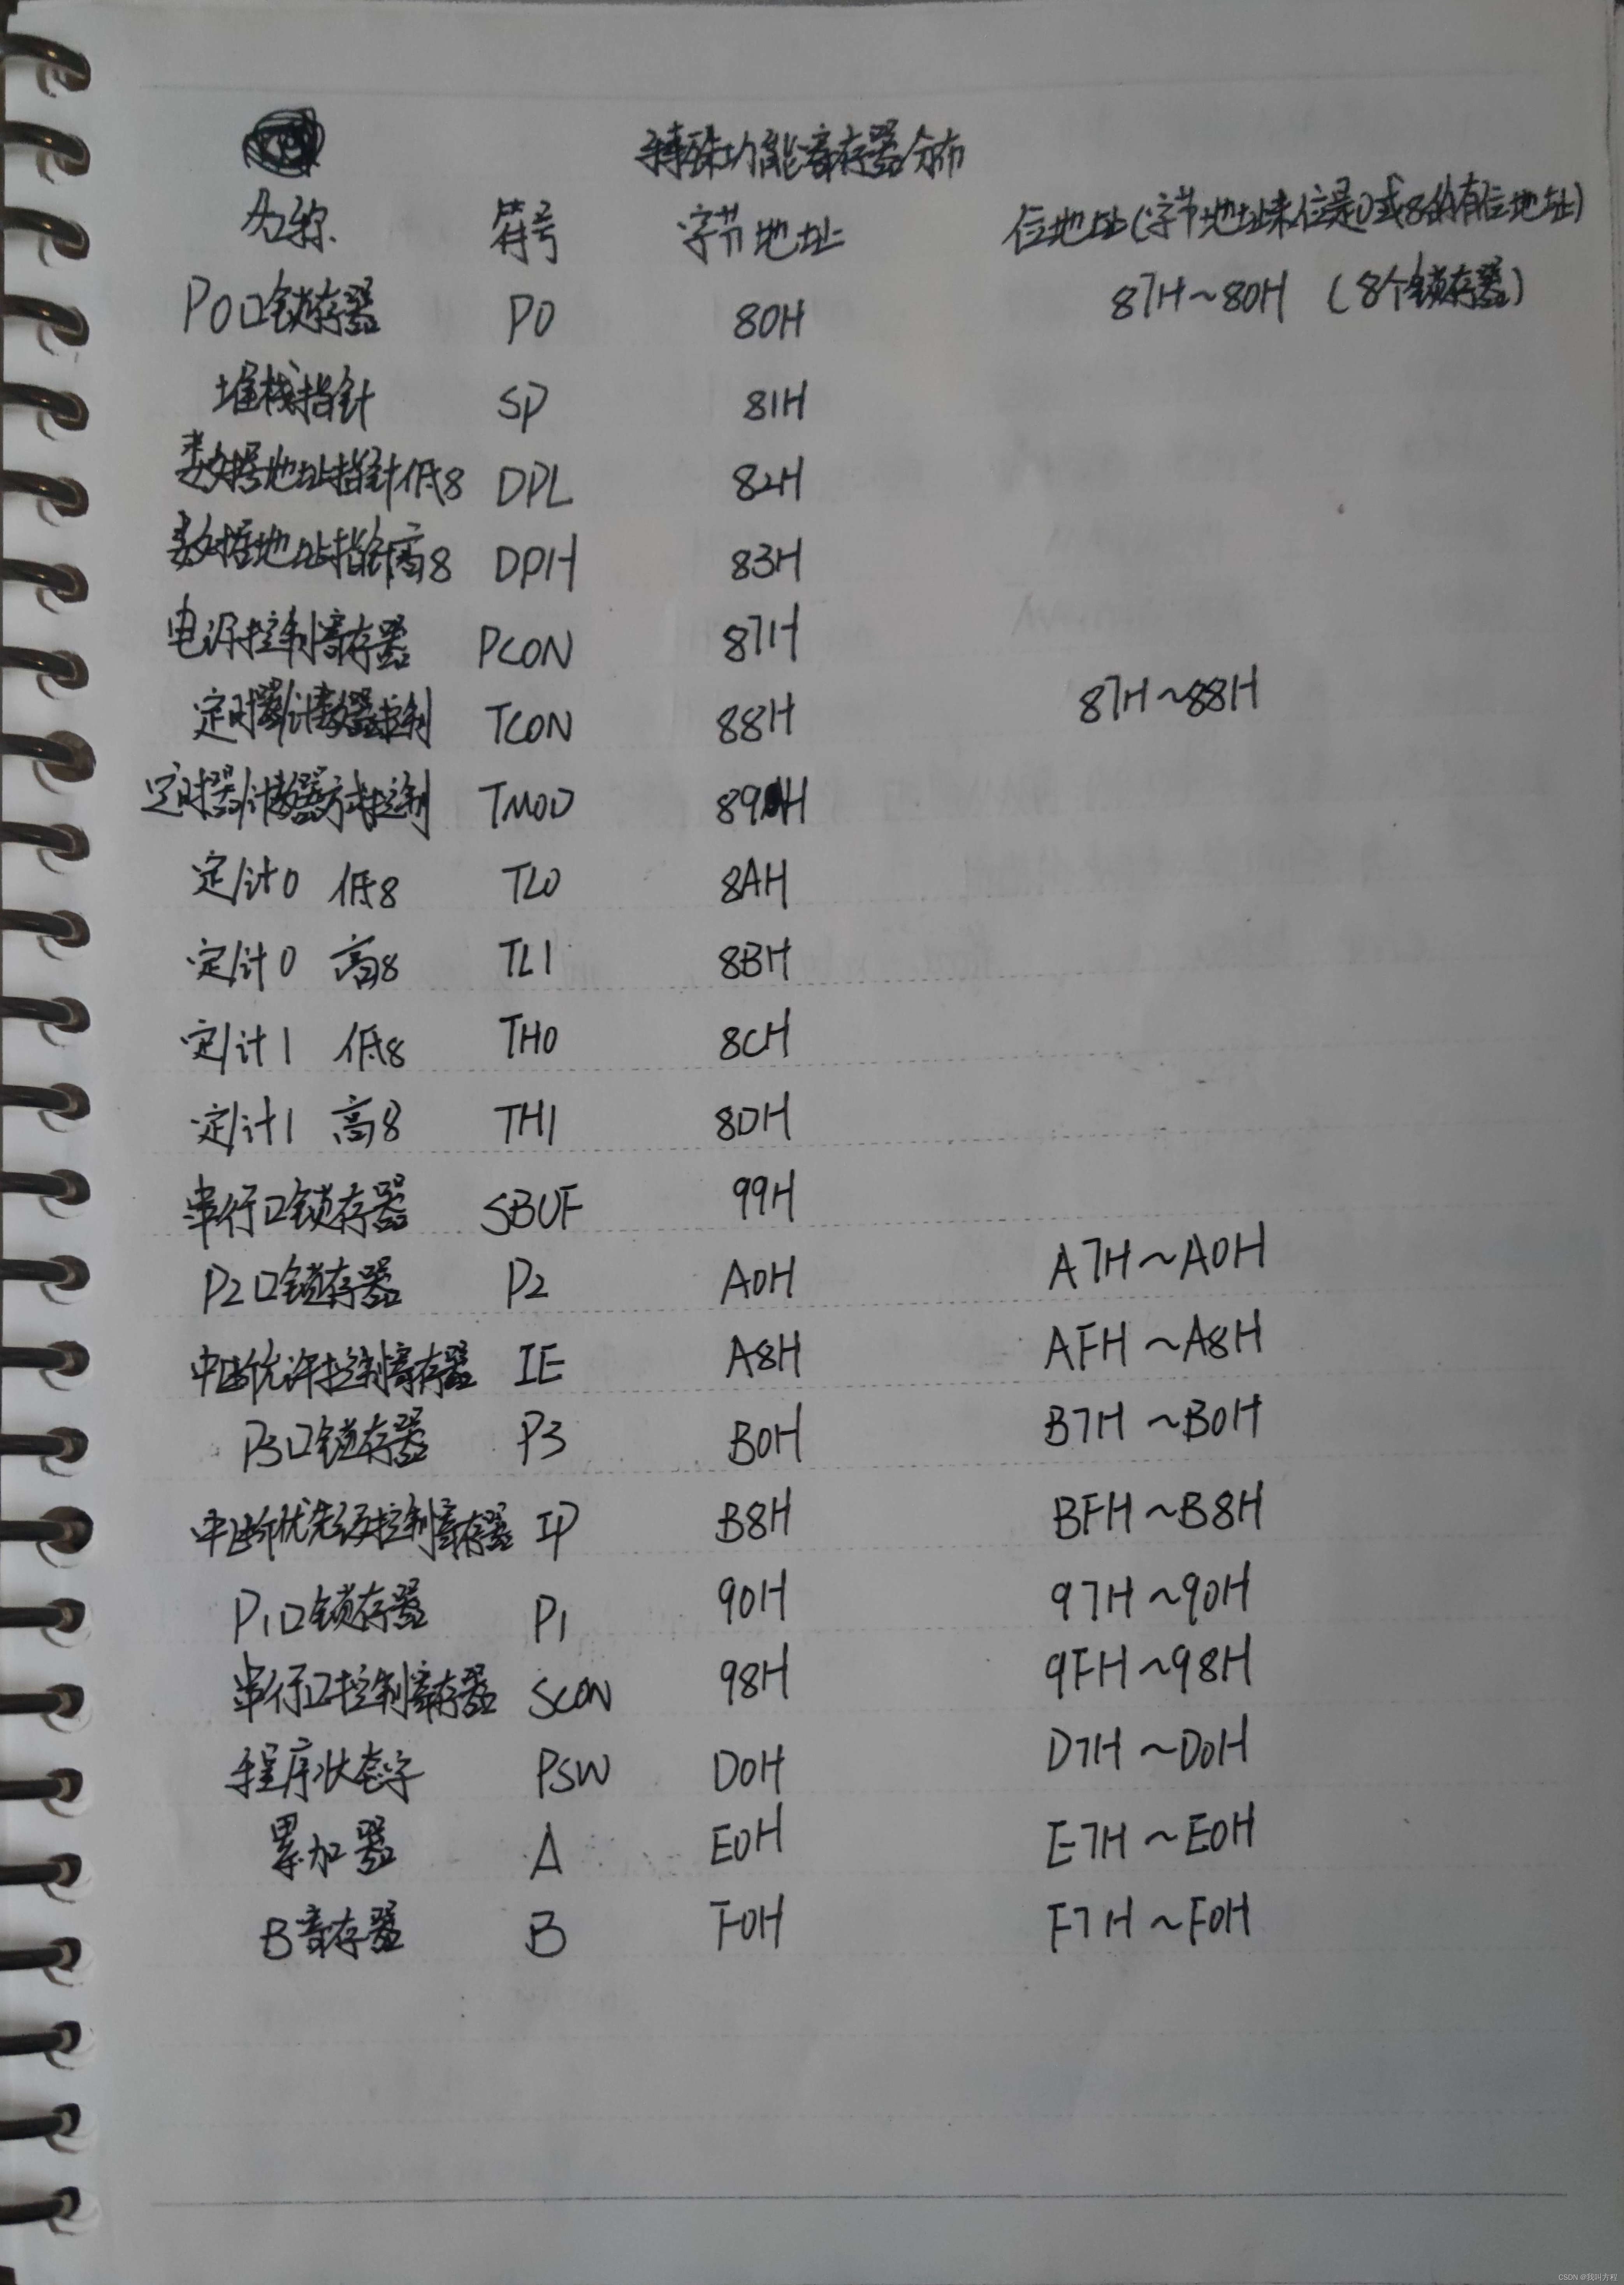 特殊功能寄存器分布
名称 符号 字节地址 位地址(字节地址末位是0或8的有位地址)
P0口锁存器 P0 80H 87H~80H (8个锁存器)
堆栈指针 SP 81H
数据地址指针低8 DPL 82H
数据地址指针高8 DPH 83H
电源控制寄存器 PCON 87H
定时器/计数器控制 TCON 88H 87H~88H
定时器/计数器方式控制 TMOD 89H
定/计0 低8 TL0 8AH
定/计0 高8 TL1 8BH
定/计1 低8 TH0 8CH
定/计1 高8 TH1 8DH
串行口锁存器 SBUF 99H
P2口锁存器 P2 A0H A7H~A0H
中断允许控制寄存器 IE A8H AFH~A8H
P3口锁存器 P3 B0H B7H~B0H
中断优先级控制寄存器 IP B8H BFH~B8H
P1口锁存器 P1 90H 97H~90H
串行口控制寄存器 SCON 98H 9FH~98H
程序状态字 PSW D0H D7H~D0H
累加器 A E0H E7H~E0H
B寄存器 B F0H F7H~F0H
CSDN @我叫方程